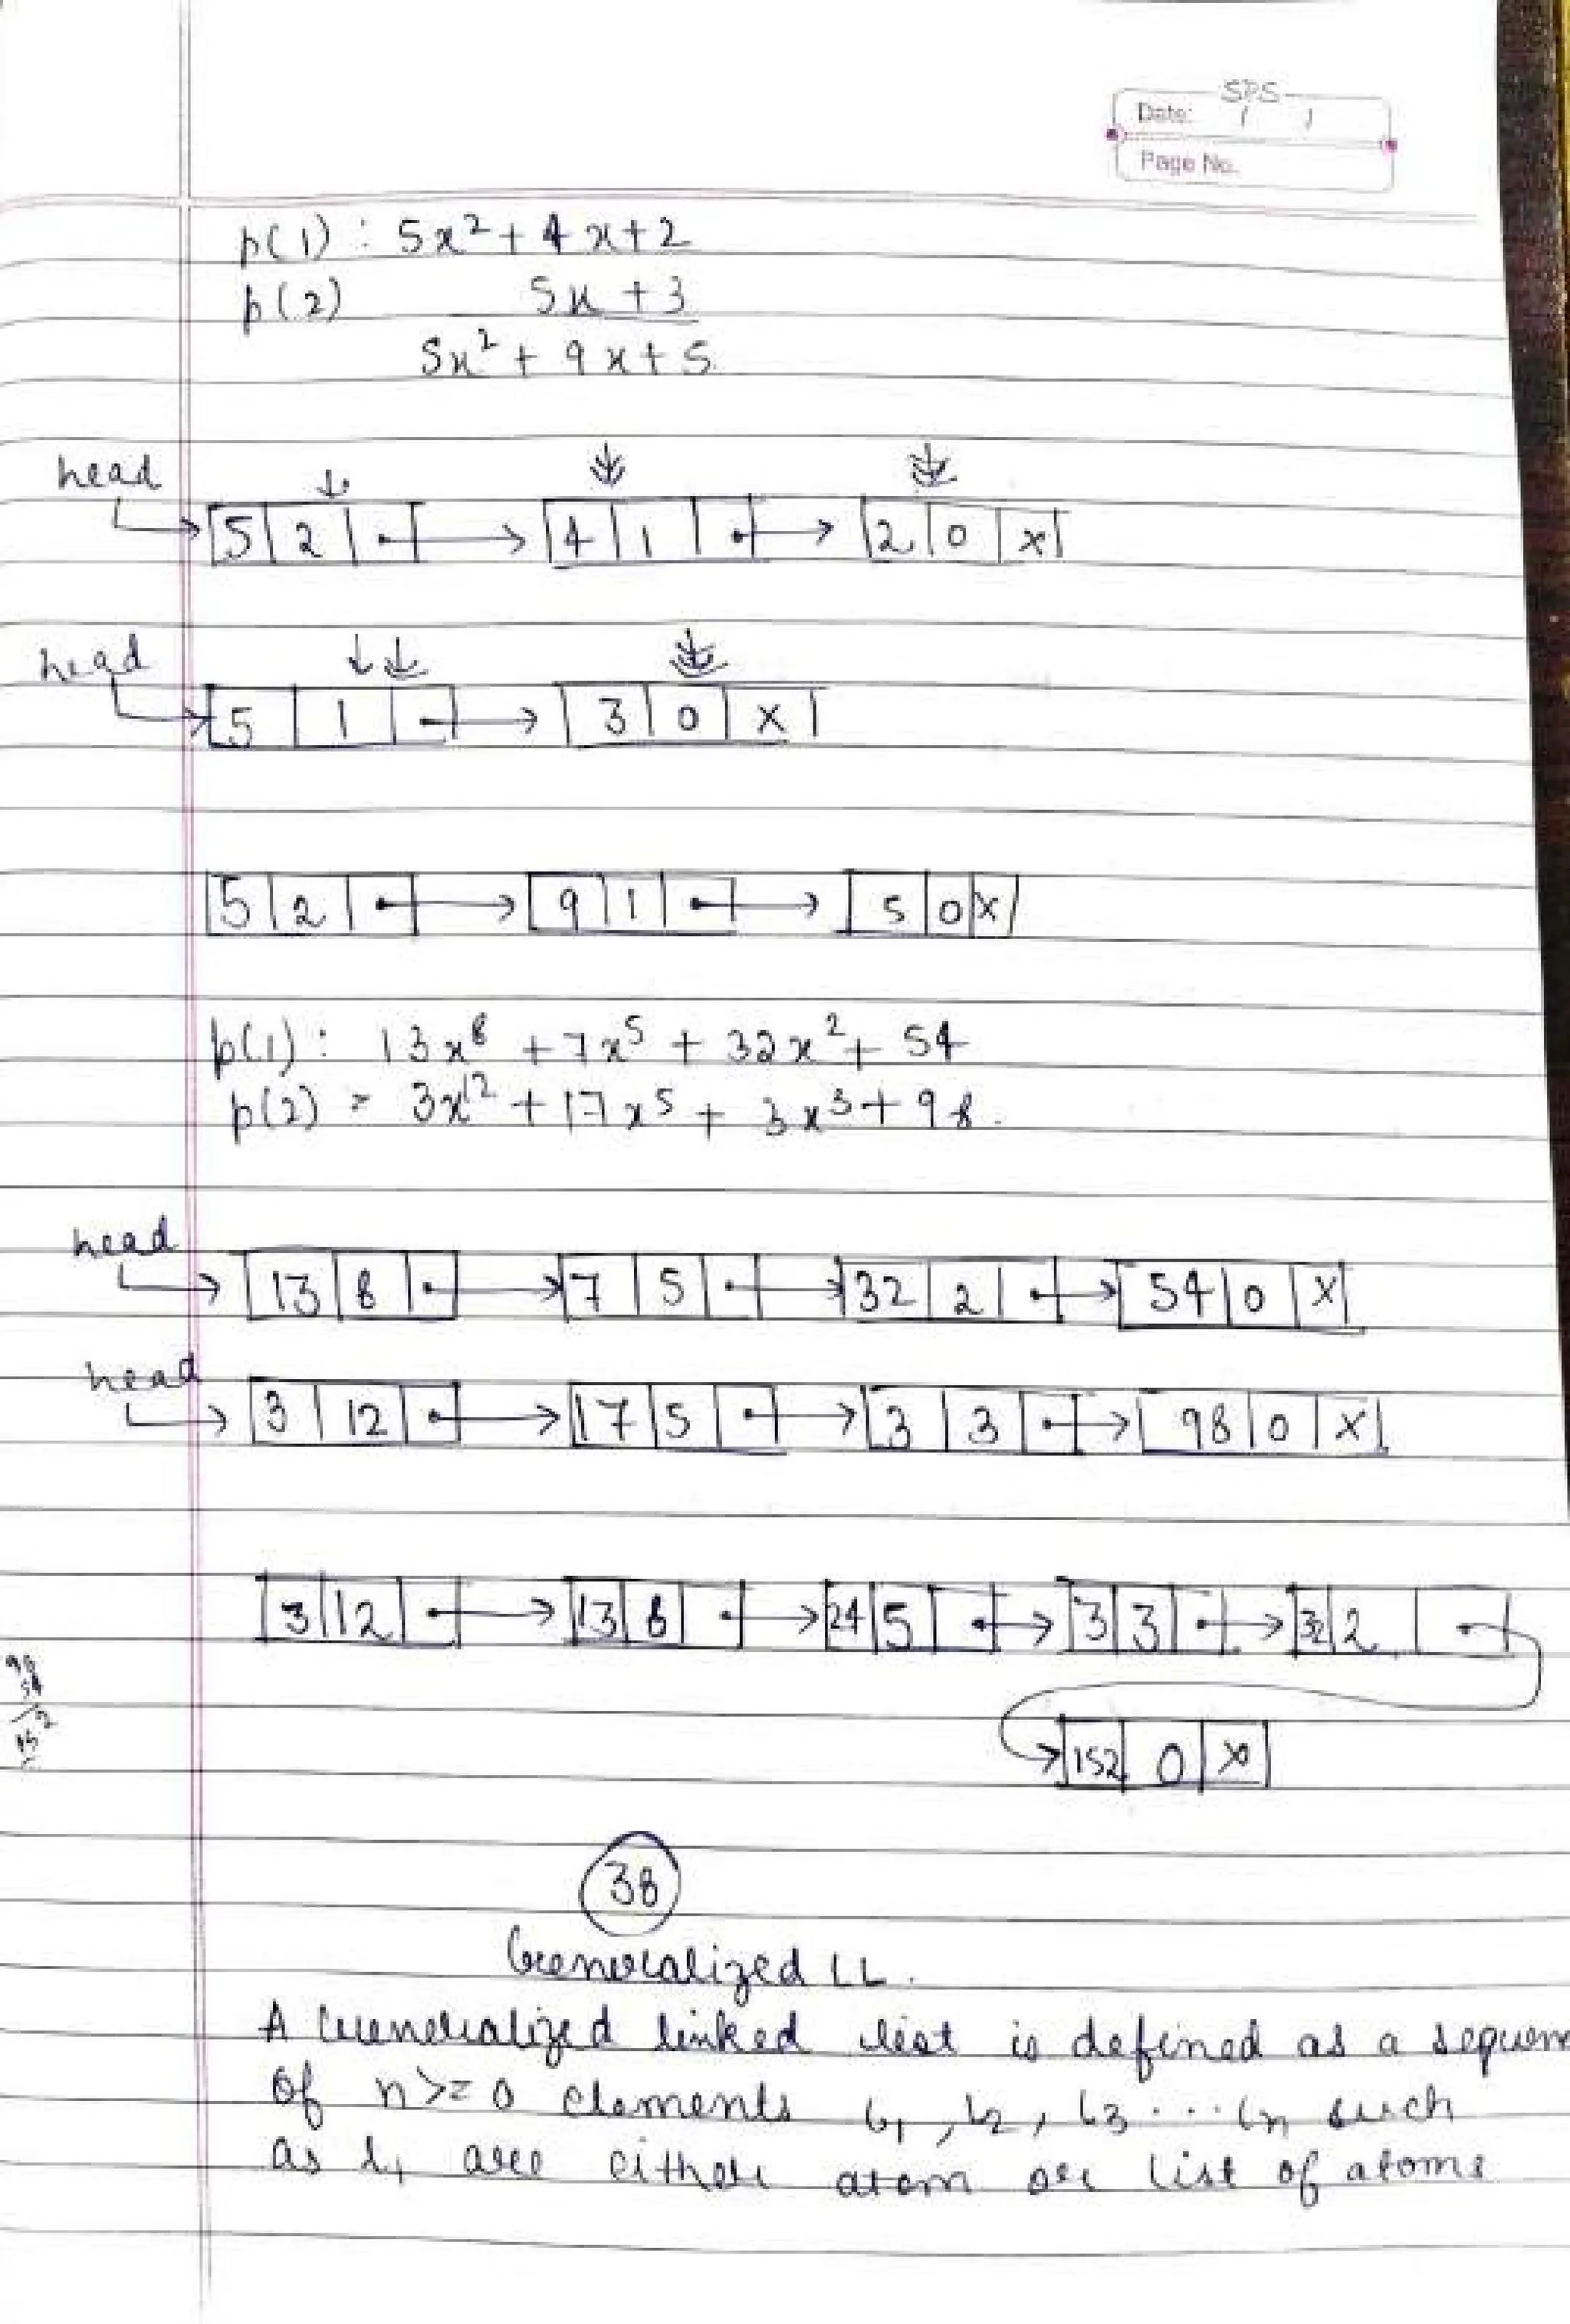 SPS
Date: / /
Page No.
p(1) : 5x² + 4x + 2
p(2) 5x + 3
5x² + 9x + 5.
head
5 | 2 | • → 4 | 1 | • → 2 | 0 | x
head
5 | 1 | • → 3 | 0 | x
5 | 2 | • → 9 | 1 | • → 5 | 0 | x
p(1) : 13x⁸ + 7x⁵ + 32x² + 54
p(2) = 3x¹² + 17x⁵ + 3x³ + 98.
head
13 | 8 | • → 7 | 5 | • → 32 | 2 | • → 54 | 0 | x
head
3 | 12 | • → 17 | 5 | • → 3 | 3 | • → 98 | 0 | x
3 | 12 | • → 13 | 8 | • → 24 | 5 | • → 3 | 3 | • → 32 | 2 | •
98
54
152
→ 152 | 0 | x
38
Generalized LL.
A Generalized linked list is defined as a sequen
of n >= 0 elements l1, l2, l3 ... ln such
as l1 are either atom or list of atoms